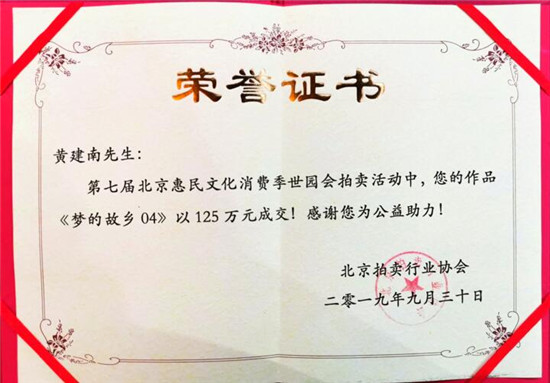 荣誉证书
黄建南先生：
第七届北京惠民文化消费季世园会拍卖活动中，您的作品
《梦的故乡 04》以 125 万元成交！感谢您为公益助力！
北京拍卖行业协会
二零一九年九月三十日